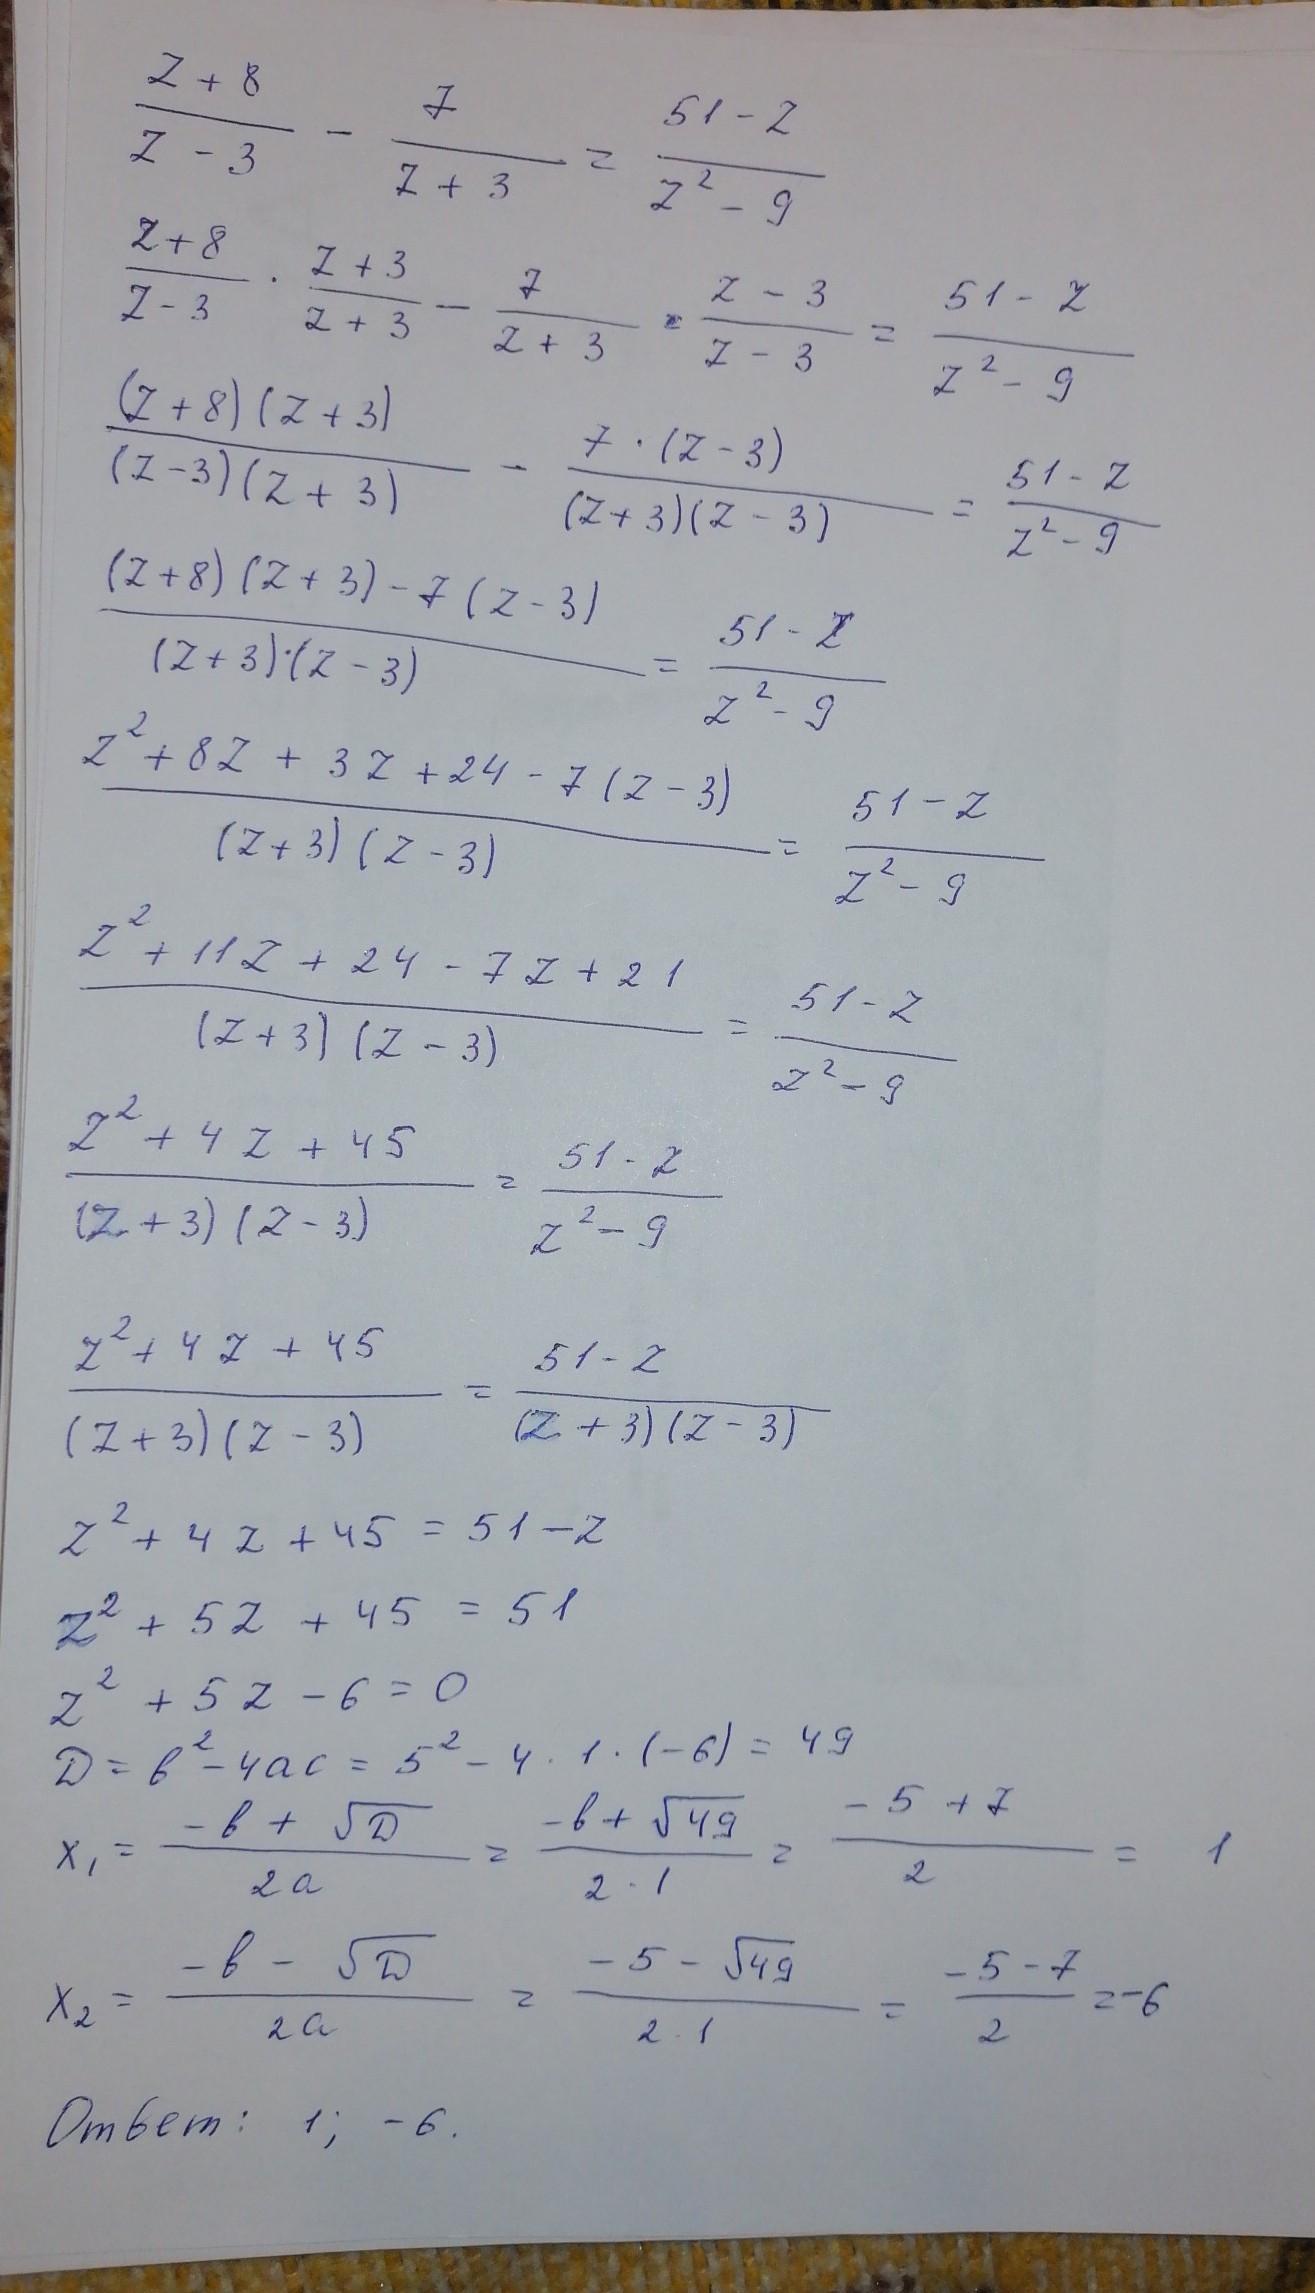 (z+8)/(z-3) - 7/(z+3) = (51-z)/(z²-9)
(z+8)/(z-3) · (z+3)/(z+3) - 7/(z+3) · (z-3)/(z-3) = (51-z)/(z²-9)
((z+8)(z+3))/((z-3)(z+3)) - (7·(z-3))/((z+3)(z-3)) = (51-z)/(z²-9)
((z+8)(z+3)-7(z-3))/((z+3)·(z-3)) = (51-z)/(z²-9)
(z²+8z+3z+24-7(z-3))/((z+3)(z-3)) = (51-z)/(z²-9)
(z²+11z+24-7z+21)/((z+3)(z-3)) = (51-z)/(z²-9)
(z²+4z+45)/((z+3)(z-3)) = (51-z)/(z²-9)
(z²+4z+45)/((z+3)(z-3)) = (51-z)/((z+3)(z-3))
z²+4z+45=51-z
z²+5z+45=51
z²+5z-6=0
D=b²-4ac=5²-4·1·(-6)=49
x₁ = (-b+√D)/(2a) = (-b+√49)/(2·1) = (-5+7)/2 = 1
x₂ = (-b-√D)/(2a) = (-5-√49)/(2·1) = (-5-7)/2 = -6
Ответ: 1; -6.